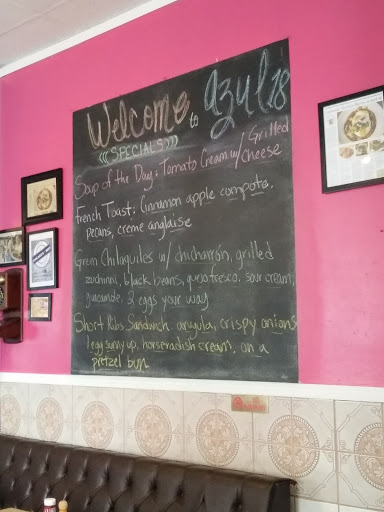 Welcome to azul 18
(((SPECIALS)))
Soup of the Day: Tomato Cream w/ Grilled Cheese
French Toast: Cinnamon apple compota,
pecans, creme anglaise
Green Chilaquiles w/ chicharrón, grilled
zucchinni, black beans, queso fresco, sour cream,
guacamole, 2 eggs your way
Short Ribs Sandwich arugula, crispy onions
1 egg sunny up, horseradish cream, on a
pretzel bun